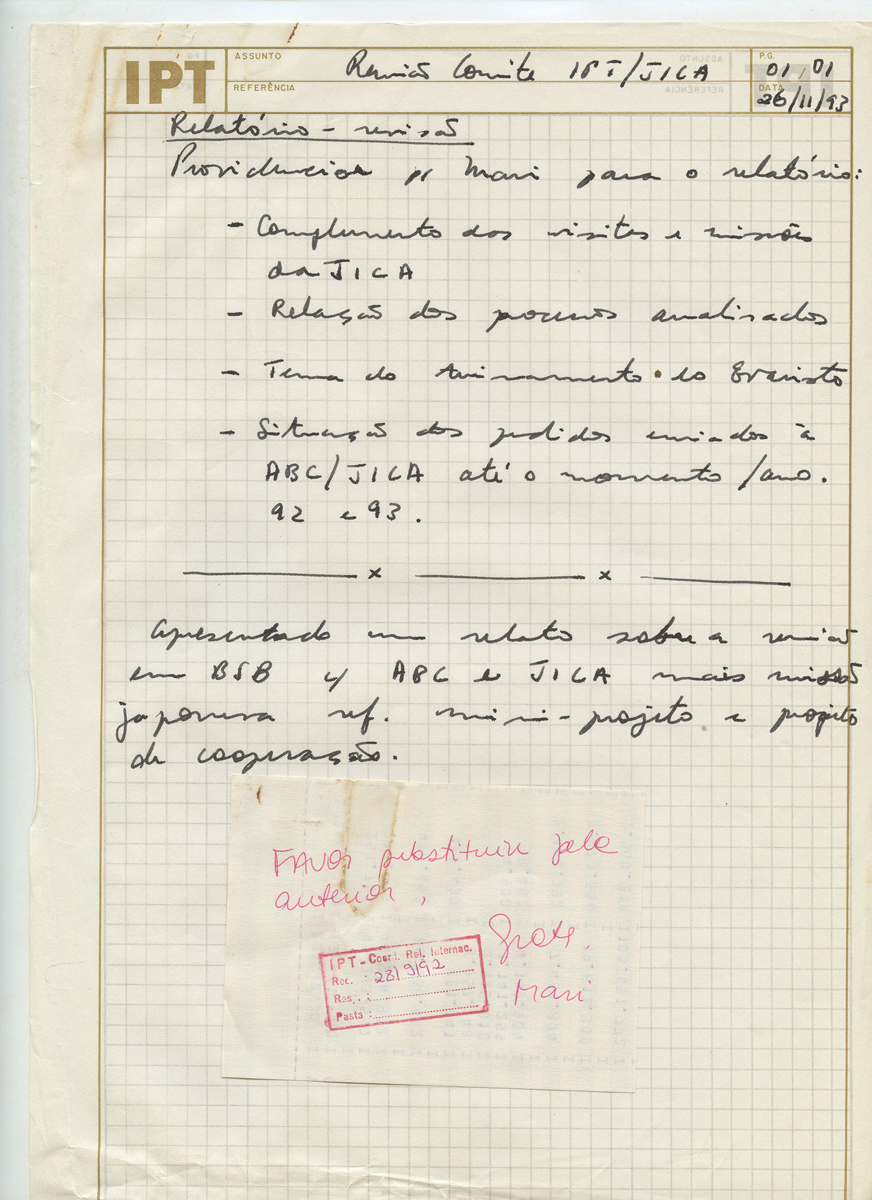 IPT
ASSUNTO
Reunião Comite IPT/JICA
P.G.
01/01
REFERÊNCIA
DATA
26/11/93
Relatório - revisão
Providencias p/ Mari para o relatório:
- Complemento das visitas e missões
da JICA
- Relação dos processos analisados
- Tema do treinamento do Evaristo
- Situação dos pedidos enviados à
ABC/JICA até o momento /ano.
92 e 93.
x x
Apresentado um relato sobre a reunião
em BSB c/ ABC e JICA mais missão
japonesa ref. mini-projeto e projeto
de cooperação.
FAVOR substituir pelo
anterior,
Grata.
Mari
IPT - Coord. Rel. Internac.
Rec. : 28/9/92
Resp. :
Pasta :